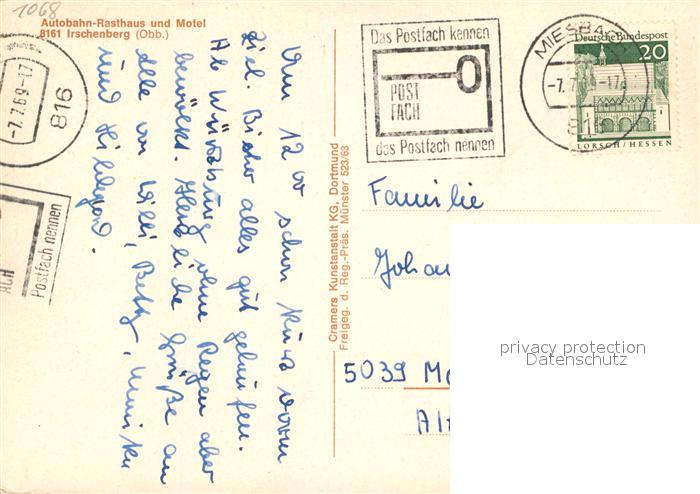 1068
Autobahn-Rasthaus und Motel
8161 Irschenberg (Obb.)
-7.7.69-17
816
Postfach nennen
Das Postfach kennen
POST
FACH
das Postfach nennen
MIESBACH
-7.7.69-17
816
Deutsche Bundespost
20
LORSCH/HESSEN
Um 12 00 schon kurz vorm
Ziel. Bisher alles gut gelaufen.
Ab Würzburg ohne Regen aber
bewölkt. Herzliche Grüße an
alle von Willi, Betty, Monika
und Hildegard.
Cramers Kunstanstalt KG, Dortmund
Freigeg. d. Reg.-Präs. Münster 523/63
Familie
Joha
5039
Alt
privacy protection
Datenschutz